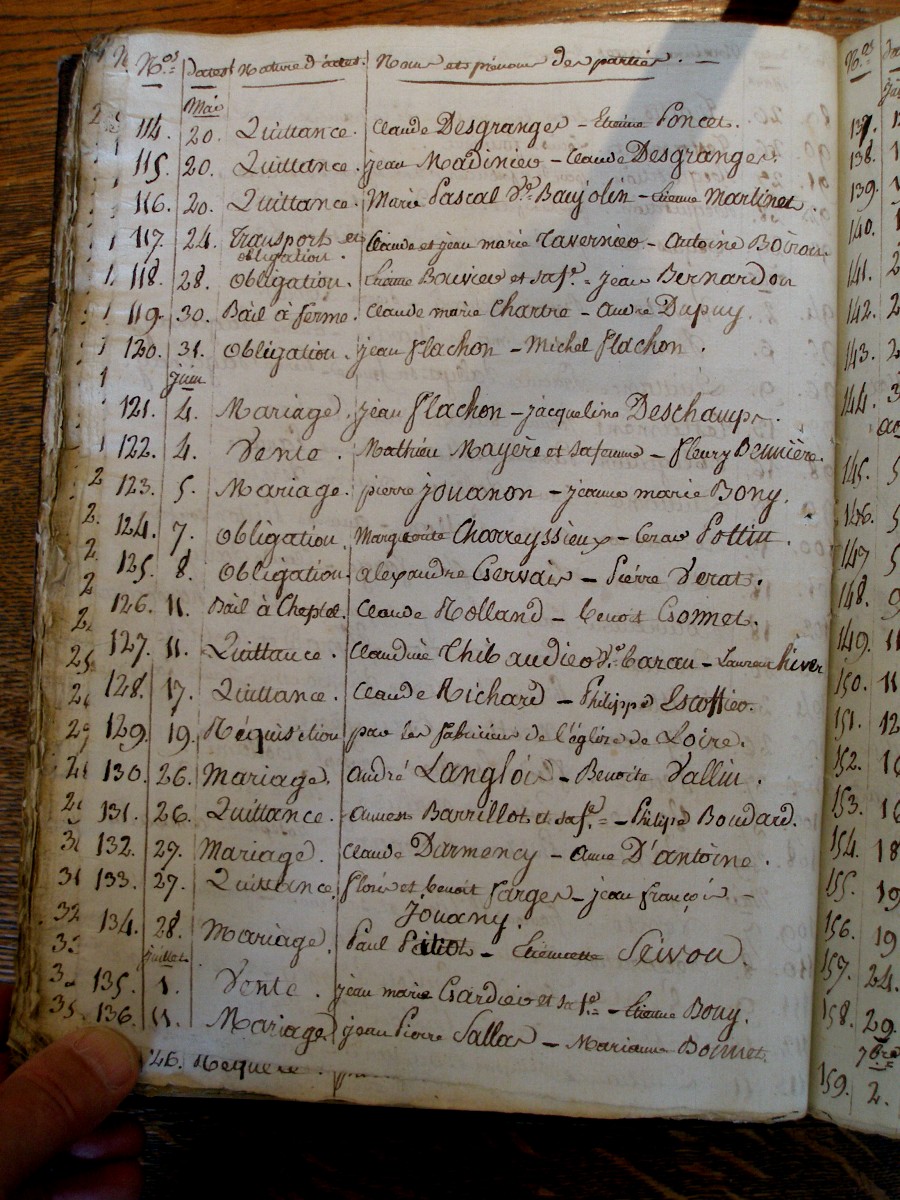 Nos Dates Nature d'actes. Noms et prénoms des parties.
Mai
114. 20. Quittance. Claude Desgranges - Etienne Poncet.
115. 20. Quittance. jean Madinier - Claude Desgranges.
116. 20. Quittance. Marie Pascal Ve. Baujolin - Etienne Martinet.
117. 24. Transport et Claude et jean marie Tavernier - Antoine Boiron.
obligation.
118. 28. Obligation. Etienne Bouvier et sa fe. - jean Bernardon
119. 30. Bail à ferme. Claude marie Chartre - andré Dupuy.
120. 31. Obligation. jean flachon - Michel flachon.
juin
121. 4. Mariage. jean flachon - jacqueline Deschamps.
122. 4. Vente. Mathieu Mayère et sa femme - fleury
123. 5. Mariage. pierre jouanon - jeanne marie Bony.
124. 7. Obligation. Marguerite Charreyssieux - Cesar Pottin.
125. 8. Obligation. alexandre Gervais - Piérre Verat.
126. 11. Bail à Cheptel. Claude Rolland - benoit Gonnet.
127. 11. Quittance. Claudine Thibaudier Ve. - Laurent hiver
128. 17. Quittance. Claude Richard - Philippe Escoffier.
129. 19. Réquisition par les fabriciens de l'église de Loire.
130. 26. Mariage. andré Langlois - Benoite Vallin.
131. 26. Quittance. Barrillot et sa fe. - Philipe Boudard.
132. 27. Mariage. Claude Darmency - anne D'antoine.
133. 27. Quittance. floris et benoit farges - jean françois -
Jouany.
134. 28. Mariage. Paul - Etiennette Seivou.
juillet
135. 1. Vente. jean marie Gardier et sa fe. - Etienne Bony.
136. 11. Mariage. jean Pierre Sallas - Marianne Bonnet.